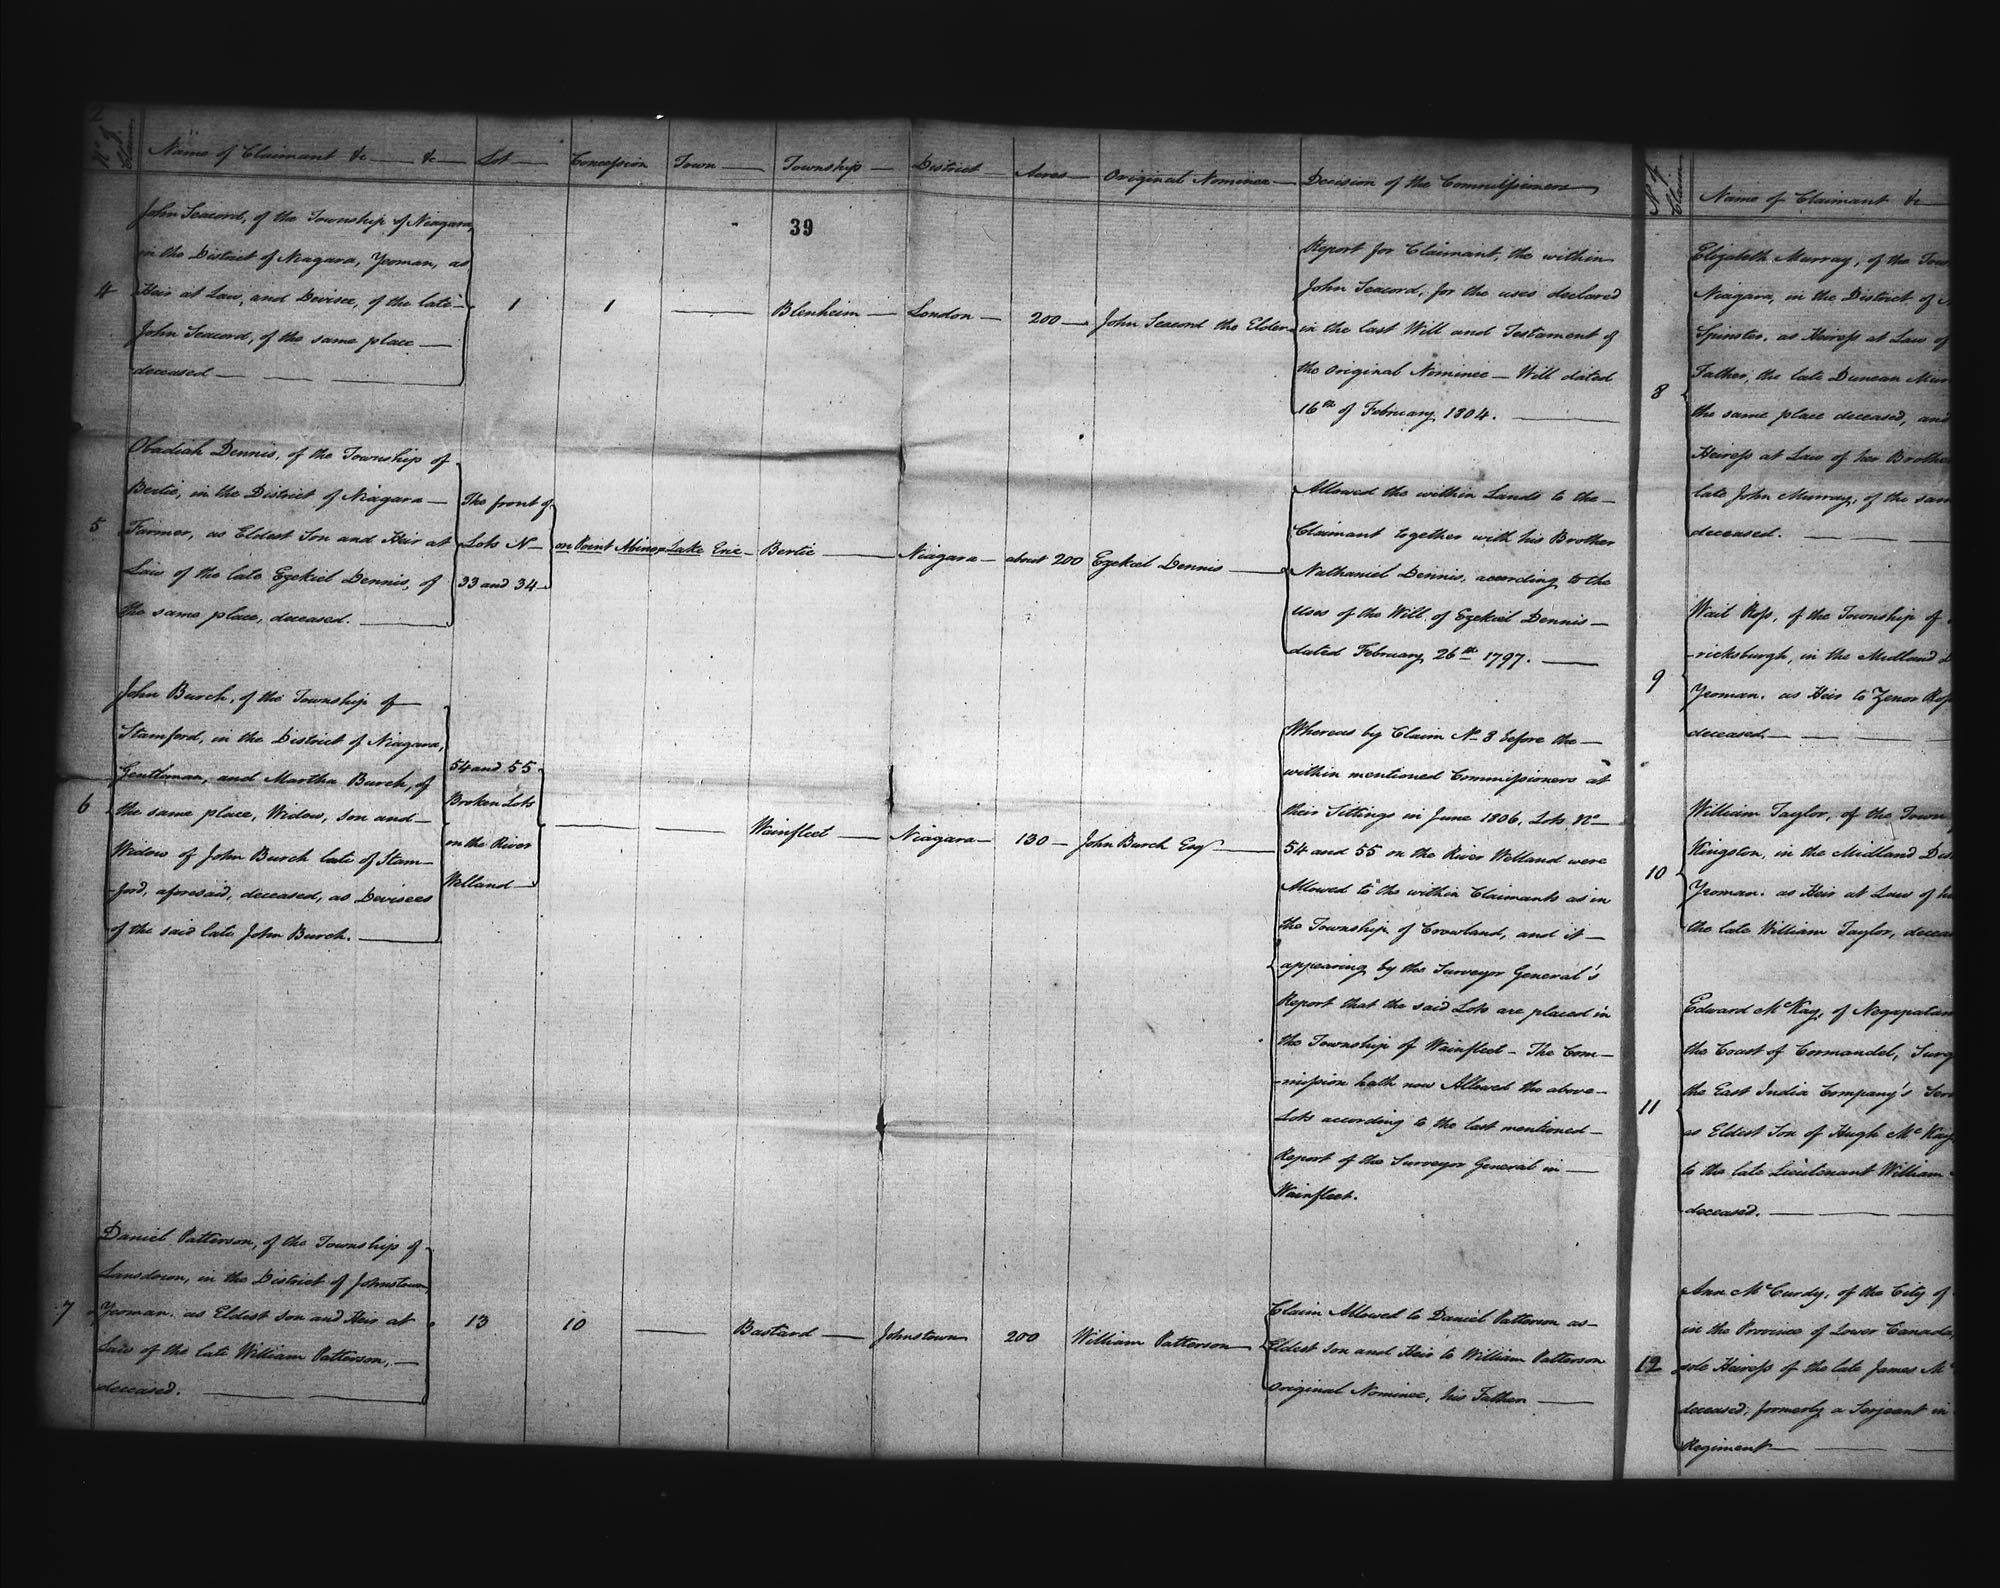 2
No. of Claim.
Name of Claimant &c — &c —
Lot —
Concession
Town —
Township —
District —
Acres —
Original Nominee —
Decision of the Commissioners
39
4
John Seacord, of the Township of Niagara,
in the District of Niagara, Yeoman, as
Heir at Law, and Devisee, of the late —
John Seacord, of the same place —
deceased — — —
1
1
—
Blenheim —
London —
200 —
John Seacord the Elder
Report for Claimant, the within
John Seacord, for the uses declared
in the last Will and Testament of
the original Nominee — Will dated
16th of February 1804. —
5
Obadiah Dennis, of the Township of
Bertie, in the District of Niagara —
Farmer, as Eldest Son and Heir at
Law of the late Ezekiel Dennis, of
the same place, deceased. —
The front of
Lots No —
33 and 34 —
on Point Abino
Lake Erie —
Bertie —
Niagara —
about 200
Ezekiel Dennis —
Allowed the within Lands to the —
Claimant together with his Brother
Nathaniel Dennis, according to the
uses of the Will of Ezekiel Dennis —
dated February 26th 1797. —
6
John Burch, of the Township of —
Stamford, in the District of Niagara,
Gentleman, and Martha Burch, of
the same place, Widow, son and —
Widow of John Burch late of Stam —
-ford, aforesaid, deceased, as Devisees
of the said late John Burch. —
54 and 55
Broken Lots
on the River
Welland —
—
—
Wainfleet —
Niagara —
130 —
John Burch Esqr —
Whereas by Claim No 8 before the —
within mentioned Commissioners at
their Sittings in June 1806, Lots No —
54 and 55 on the River Welland were
Allowed to the within Claimants as in
the Township of Crowland, and it —
appearing by the Surveyor General's
Report that the said Lots are placed in
the Township of Wainfleet — The Com —
-mission hath now Allowed the above —
Lots according to the last mentioned —
Report of the Surveyor General in —
Wainfleet.
7
Daniel Patterson, of the Township of
Lansdown, in the District of Johnstown,
Yeoman. as Eldest son and Heir at
Law of the late William Patterson, —
deceased. — —
13
10
—
Bastard —
Johnstown
200
William Patterson —
Claim Allowed to Daniel Patterson as —
Eldest Son and Heir to William Patterson
original Nominee, his Father —
No. of Claim
Name of Claimant &c
8
Elizabeth Murray, of the Town
Niagara, in the District of
Spinster. as Heiress at Law of
Father, the late Duncan Mur
the same place deceased, and
Heiress at Law of her Brothe
late John Murray, of the sam
deceased. — —
9
Wait Ross, of the Township of
-ricksburgh, in the Midland
Yeoman. as Heir to Zenos Ross
deceased. — —
10
William Taylor, of the Town
Kingston, in the Midland Dis
Yeoman. as Heir at Law of h
the late William Taylor, decea
11
Edward McKay, of Negapatam
the Coast of Cormandel, Surg
the East India Company's Serv
as Eldest Son of Hugh McKay
to the late Lieutenant William
deceased. — —
12
Ann McCurdy, of the City of
in the Province of Lower Canada,
sole Heiress of the late James Mc
deceased, formerly a Serjeant in
Regiment — — —